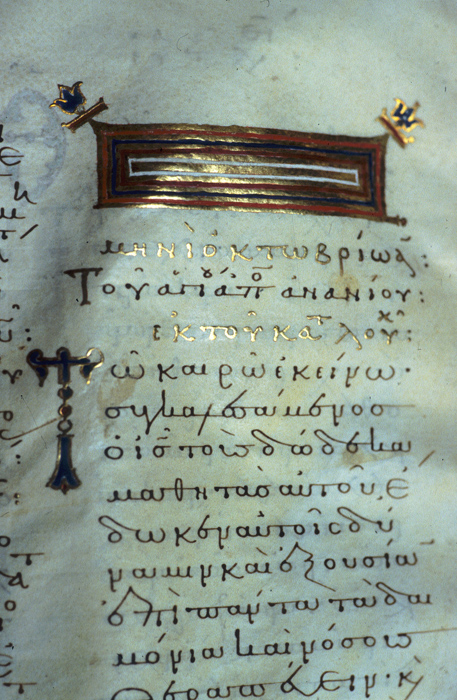 μηνὶ ὀκτωβρίω ᾱ:
Τοῦ ἁγίου ἀπο ἀνανίου:
ἐκ τοῦ κατ λουκ:
Τῶ καιρῶ ἐκείνω·
συγκαλεσάμενος
ὁ ἰς τοὺς δώδεκα
μαθητὰς αὐτοῦ, ἔ
δωκεν αὐτοῖς δύ
ναμιν καὶ ἐξουσίαν
ἐπὶ πάντα τὰ δαι
μόνια καὶ νόσους
θεραπεύειν· κὶ